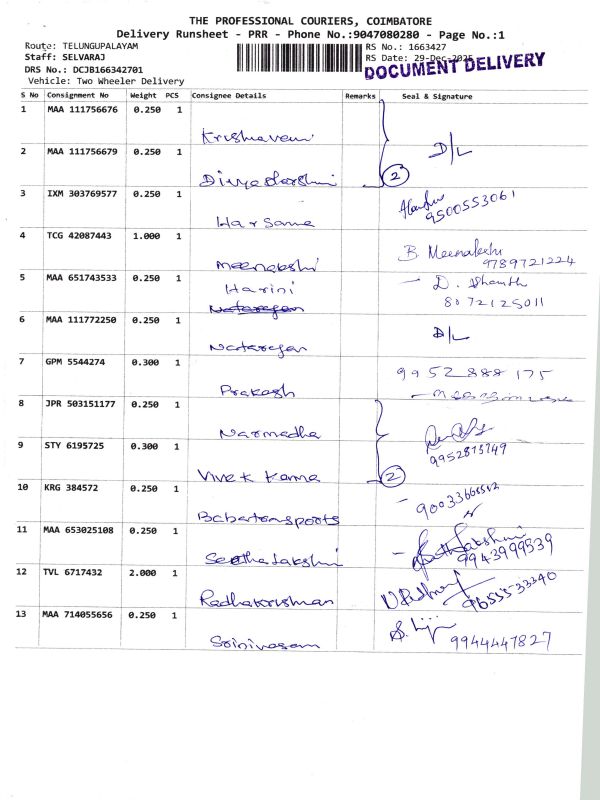 THE PROFESSIONAL COURIERS, COIMBATORE
Delivery Runsheet - PRR - Phone No.:9047080280 - Page No.:1
Route: TELUNGUPALAYAM RS No.: 1663427
Staff: SELVARAJ RS Date: 29-Dec-2025
DRS No.: DCJB166342701 DOCUMENT DELIVERY
Vehicle: Two Wheeler Delivery
S No Consignment No Weight PCS Consignee Details Remarks Seal & Signature
1 MAA 111756676 0.250 1
Krishnaveni
D/L
2 MAA 111756679 0.250 1
Divyadarshni 2
3 IXM 303769577 0.250 1
9500553061
Harsama
4 TCG 42087443 1.000 1
B. Meenakshi
Meenakshi 9789721224
5 MAA 651743533 0.250 1
Harini D. Shanthi
Natarajan 8072125011
6 MAA 111772250 0.250 1
D/L
Natarajan
7 GPM 5544274 0.300 1
9952888175
Prakash
8 JPR 503151177 0.250 1
Narmadha
9 STY 6195725 0.300 1
9952813749
Vivek Kama 2
10 KRG 384572 0.250 1
Babartonspoots
11 MAA 653025108 0.250 1
Seethalakshmi 9943999539
12 TVL 6717432 2.000 1
Radhakrishnan 9655533340
13 MAA 714055656 0.250 1
S. Liji
Srinivasam 9944447827